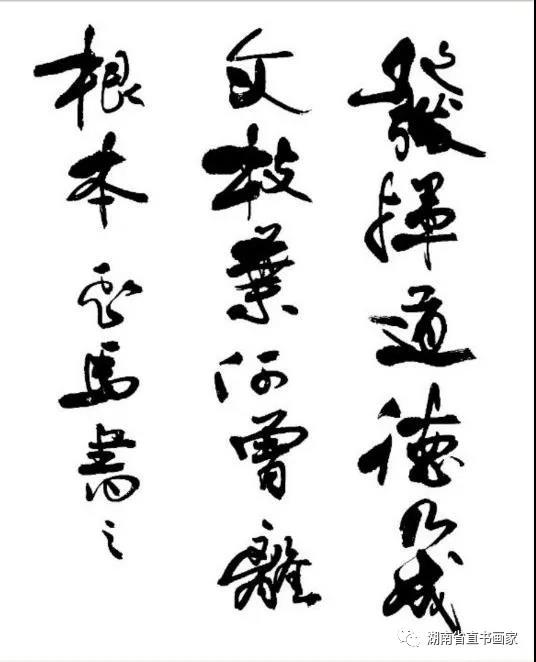 發揮道德乃成
文枝葉何曾離
根本 馬書之
湖南省直书画家